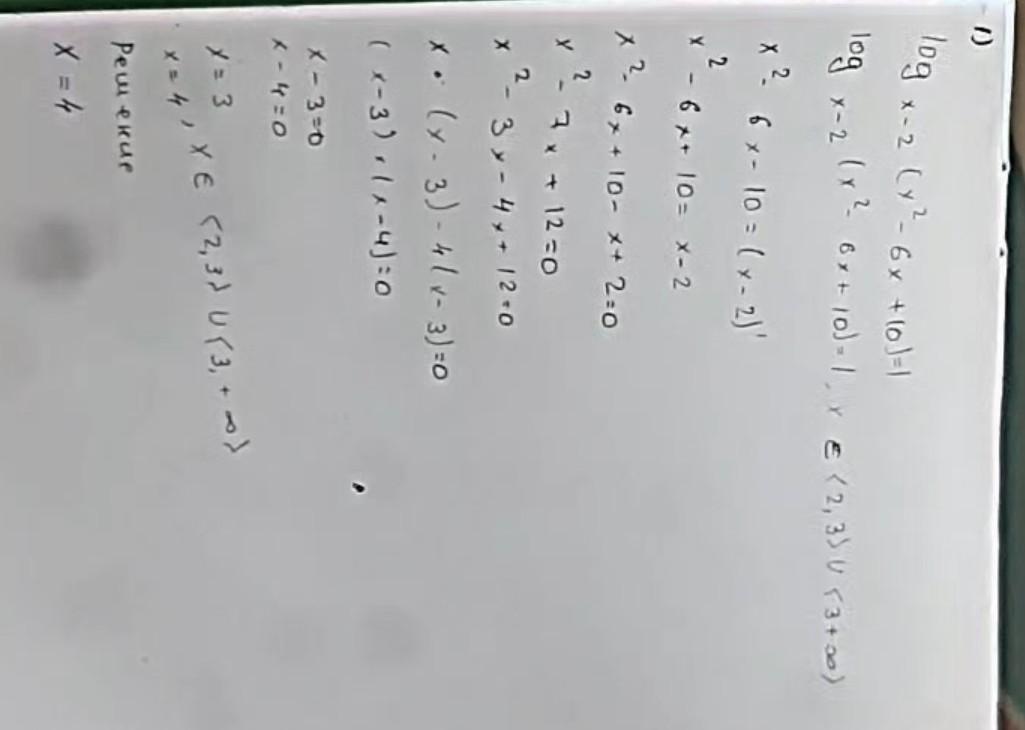 1)
log x-2 (x²-6x+10)=1
log x-2 (x²-6x+10)=1, x ∈ ⟨2,3⟩ ∪ ⟨3+∞⟩
x²-6x-10=(x-2)¹
x²-6x+10=x-2
x²-6x+10-x+2=0
x²-7x+12=0
x²-3x-4x+12=0
x·(x-3)-4(x-3)=0
(x-3)·(x-4)=0
x-3=0
x-4=0
x=3
x=4, x ∈ ⟨2,3⟩ ∪ ⟨3,+∞⟩
Решение
x=4